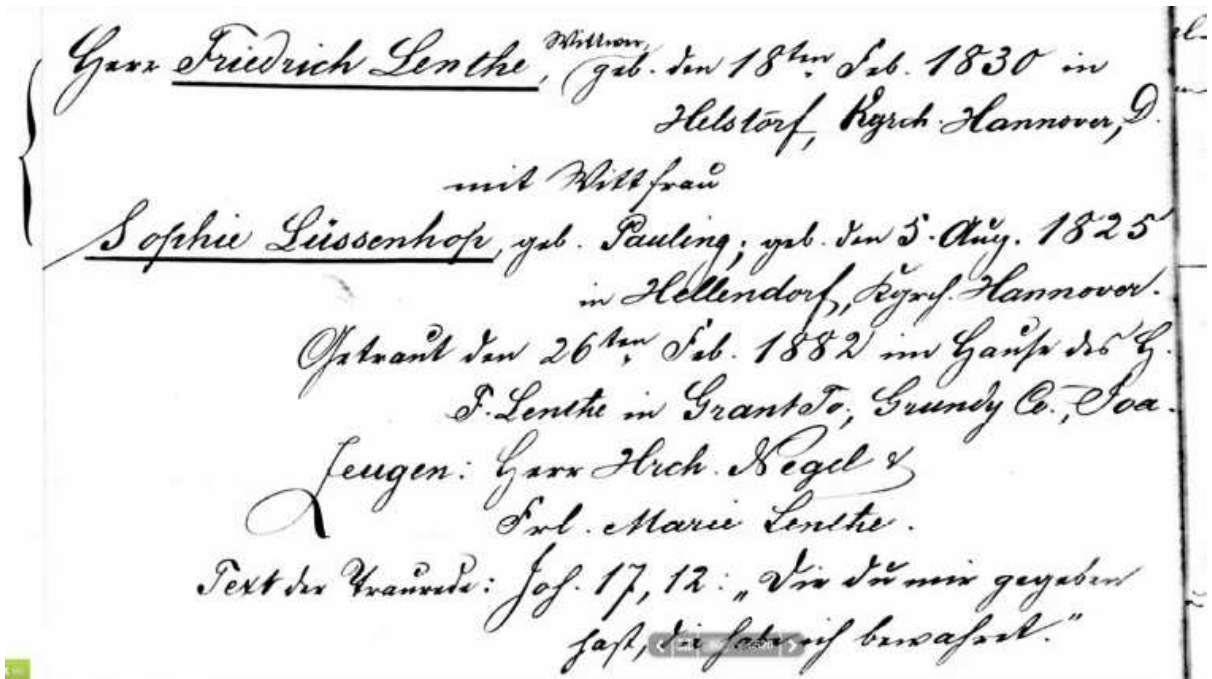 Herr Friedrich Lenthe, Wittwer, geb. den 18ten Feb. 1830 in
Helstorf, Kgrch. Hannover, D.
mit Wittfrau
Sophie Lüssenhop, geb. Pauling; geb. den 5. Aug. 1825
in Hellendorf, Kgrch. Hannover.
Getraut den 26ten Feb. 1882 im Hause des H.
F. Lenthe in Grant To., Grundy Co., Ioa.
Zeugen: Herr Hrch. Negel &
Frl. Marie Lenthe.
Text der Traurede: Joh. 17, 12: „Die du mir gegeben
hast, die habe ich bewahret.“